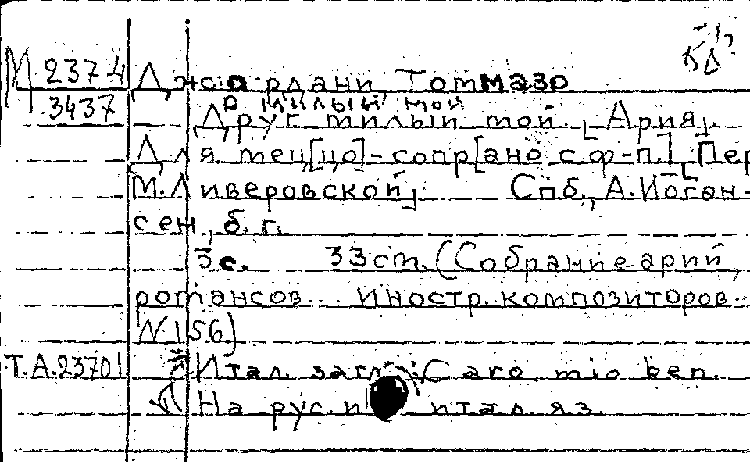 М 2374 Джордани, Томмазо
3437 Друг милый мой. [Ария].
Для мец[цо]-сопр[ано с ф-п.] [Пер
М. Ливеровской]. Спб., А. Иоган-
сен, б. г.
5 с. 33 ст. (Собрание арий,
романсов... иностр. композиторов.
N 156)
Т.А.23701 Итал. загл.: Caro mio ben.
На рус. и итал. яз.